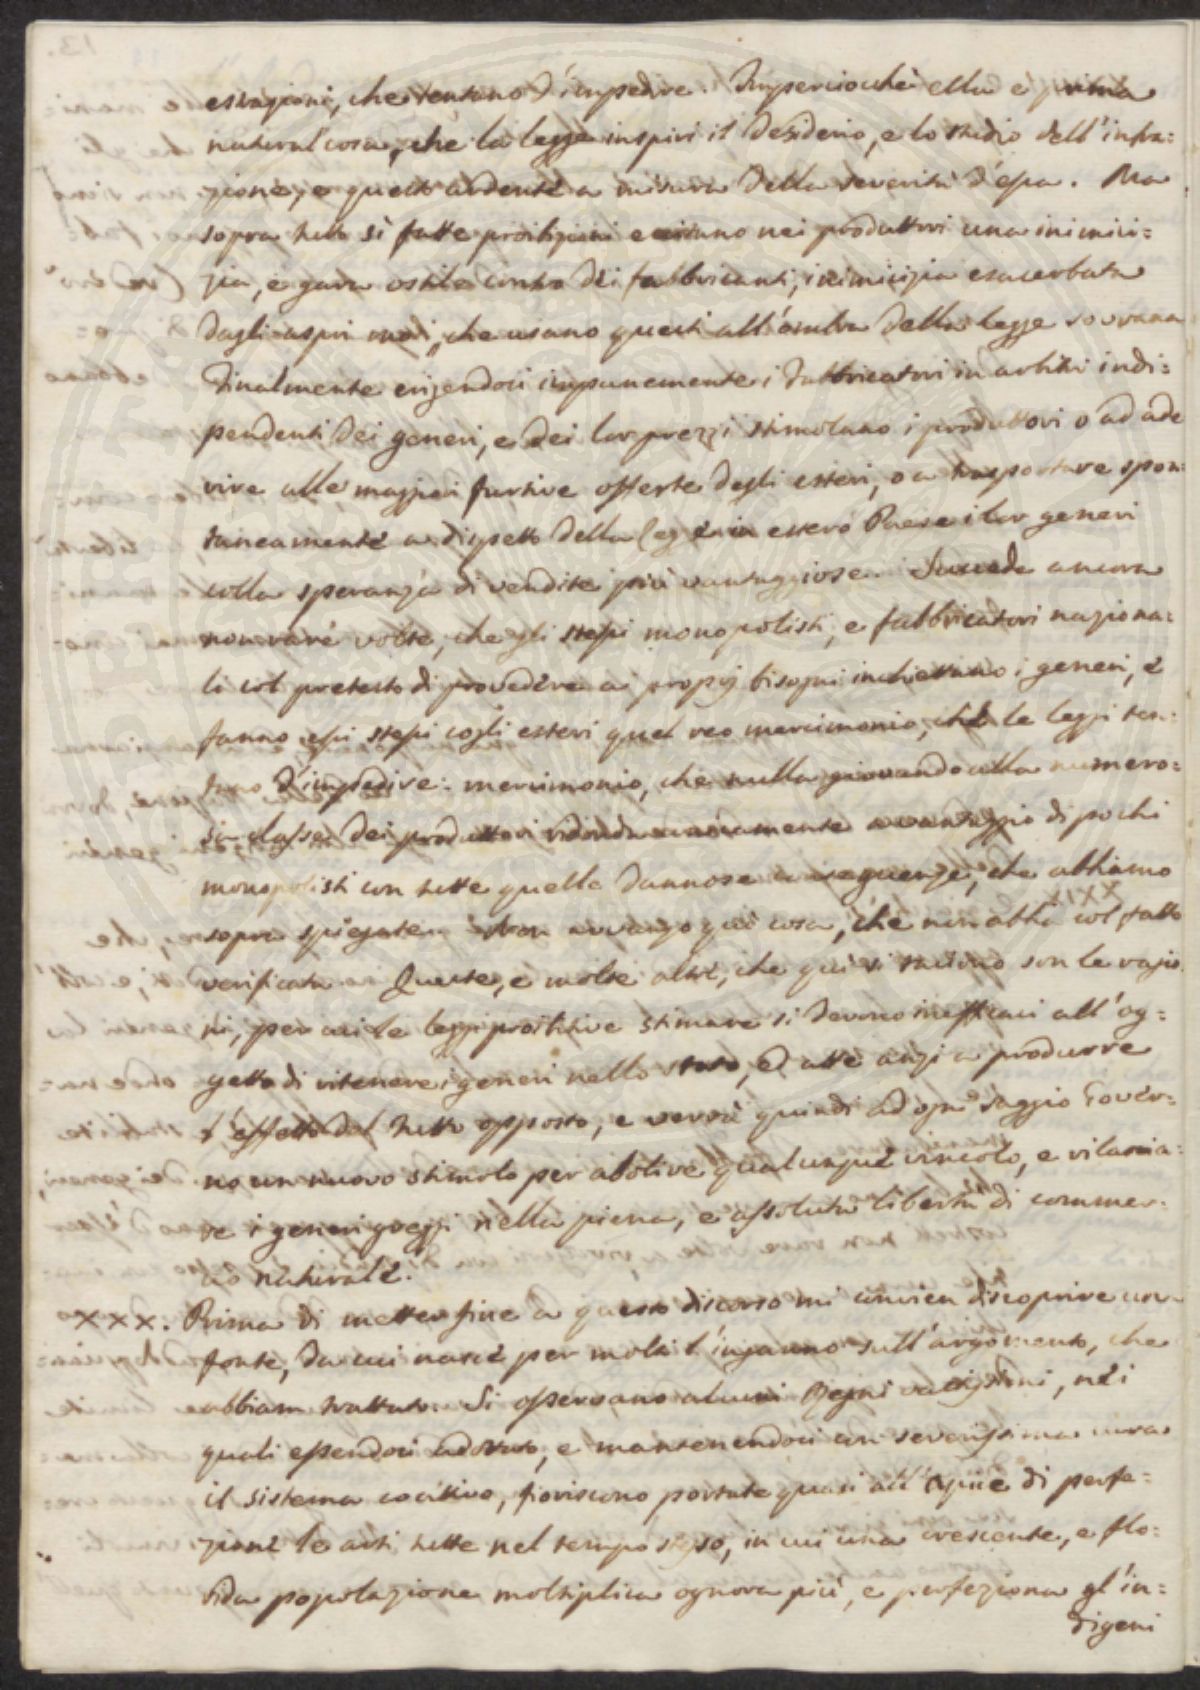 estrazioni, che tentano d'impedire. Imperciocchè ella è prima
natural cosa, che la legge inspiri il desiderio, e lo studio dell'infra:
zione, e questo ardente a misura della severità d'essa. Ma
sopra tutto sì fatte proibizioni eccitano nei produttori una inimici:
zia, e gara ostile contro dei fabbricanti, inimicizia esacerbata
dagli aspri modi, che usano questi all'ombra della legge sovrana
Finalmente erigendosi impunemente i fabbricatori in arbitri indi:
pendenti dei generi, e dei lor prezzi stimolano i produttori o ad ade
rire alle maggiori furtive offerte degli esteri, o a trasportare spon:
taneamente a dispetto della legge in estero Paese i lor generi
colla speranza di vendite più vantaggiose. Succede ancora
non rare volte, che gli stessi monopolisti, e fabbricatori naziona:
li col pretesto di provedere ai proprj bisogni inchiettano i generi, e
fanno essi stessi cogli esteri quel reo mercimonio, che le leggi ten:
tano d'impedire: mercimonio, che nulla giovando alla numero:
sa classe dei produttori ridonda unicamente a vantaggio di pochi
monopolisti con tutte quelle dannose conseguenze, che abbiamo
sopra spiegate. Non avvanzo quì cosa, che non abbia col fatto
verificata. Queste, e molte altre, che quì si tacciono son le ragio
ni, per cui le leggi proibitive stimare si devono inefficaci all'og:
getto di ritenere i generi nello stato, ed atte anzi a produrre
l'effetto del tutto opposto, e verrà quindi ad ogni saggio Gover:
no un nuovo stimolo per abolire qualunque vincolo, e rilascia:
re i generi greggi nella piena, e assoluta libertà di commer:
cio naturale.
XXX. Prima di metter fine a questo discorso mi convien discoprire una
fonte, da cui nasce per molti l'inganno sull'argomento, che
abbiam trattato. Si osservano alcuni Regni vastissimi, nei
quali essendosi adottato, e mantenendosi con severissima cura
il sistema coattivo, fioriscono portate quasi all'apice di perfe:
zione le arti tutte nel tempo stesso, in cui una crescente, e flo:
rida popolazione moltiplica ognora più, e perfeziona gl'in:
digeni